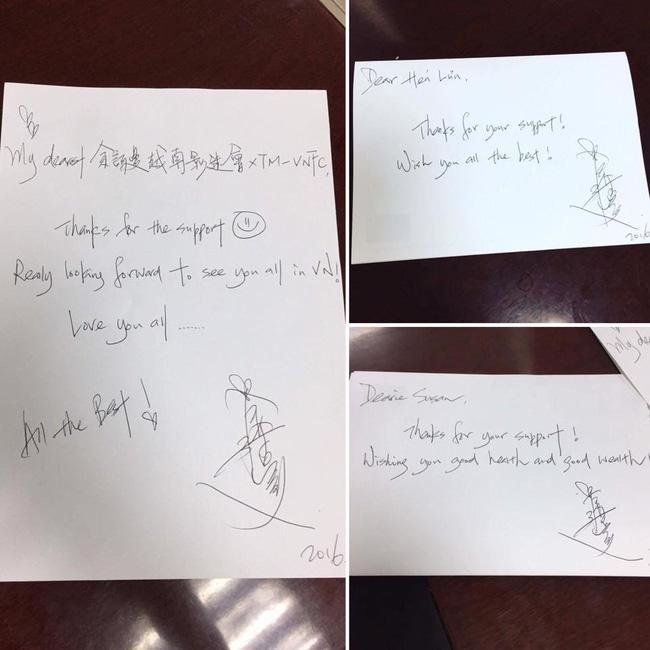 My dearest 佘詩曼越南影迷會 x TM-VNFC,
Thanks for the support
Realy looking forward to see you all in VN!
Love you all .......
All the Best !
2016
Dear
Thanks for your support!
Wish you all the best!
2016
My dea
Dearie Susan,
Thanks for your support!
Wishing you good health and good wealth!